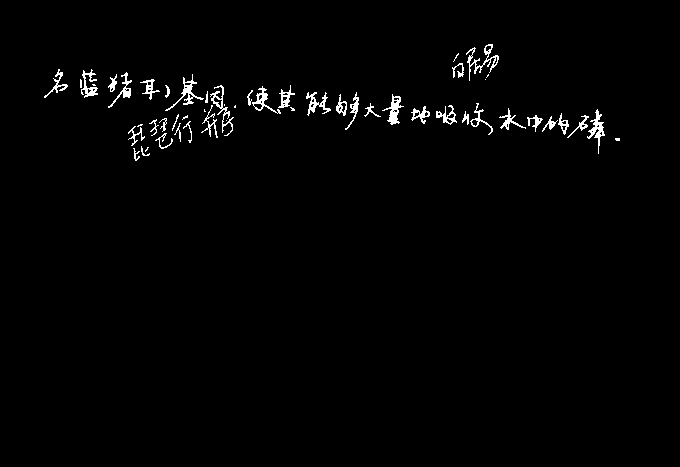 白居易
名蓝猪耳)基因.使其能够大量地吸收水中的磷.
琵琶行 并序